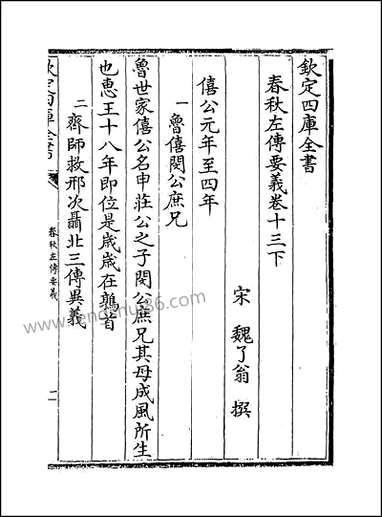 欽定四庫全書
春秋左傳要義卷十三下
宋 魏了翁 撰
僖公元年至四年
一魯僖閔公庶兄
魯世家僖公名申莊公之子閔公庶兄其母成風所生
也惠王十八年即位是歲歲在鶉首
二齊師救邢次聶北三傳異義
欽定四庫全書
春秋左傳要義